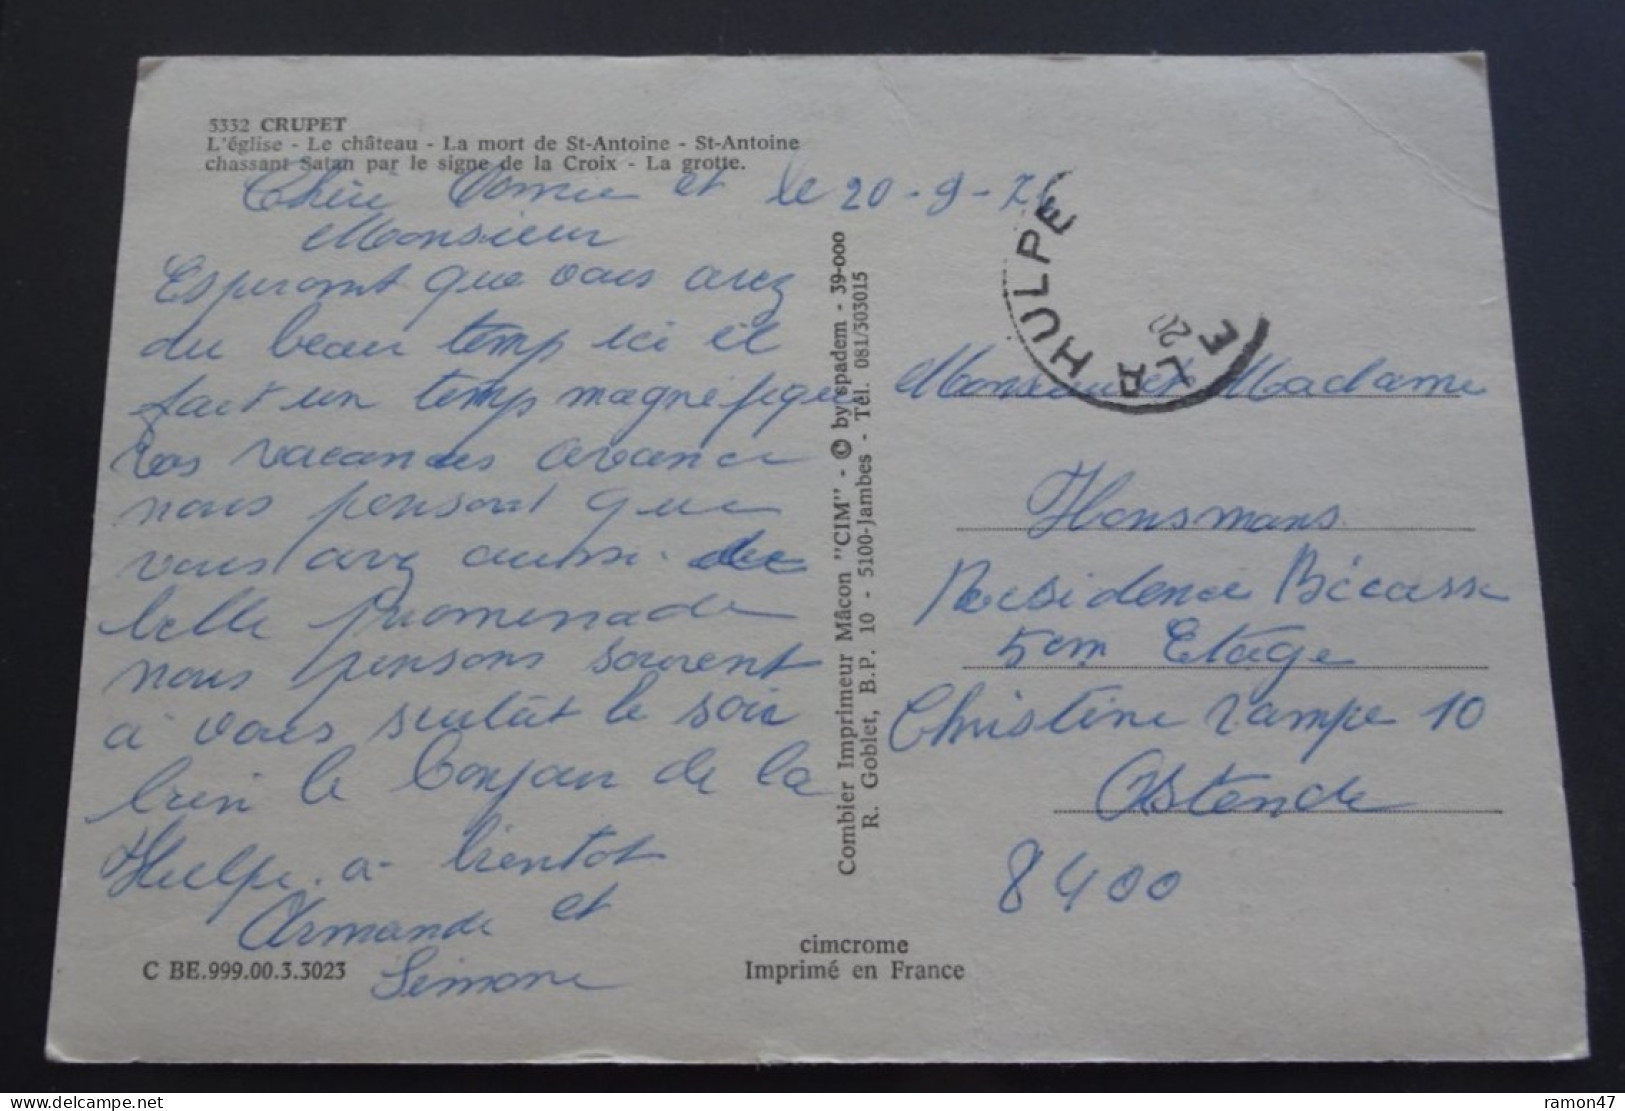 5332 CRUPET
L'église - Le château - La mort de St-Antoine - St-Antoine
chassant Satan par le signe de la Croix - La grotte.
Chère et le 20-9-76
Monsieur
Esperont que vous avez
du beau temp ici il
fait un temp magnefique
vos vacances avance
nous pensont que
vous avez aussi de
belle promenade
nous pensons souvent
à vous surtût le soir
bien le bonjour de la
Hulpe. a bientot
Armande et
Simone
C BE.999.00.3.3023
cimcrome
Imprimé en France
Combier Imprimeur Mâcon "CIM" - © by spadem - 39-000
R. Goblet, B.P. 10 - 5100-Jambes - Tél. 081/303015
LA HULPE
20
E
Monsieur et Madame
Honsmans
Residence Bécasse
5em Etage
Christine rampe 10
Ostende
8400
delcampe.net
ramon47